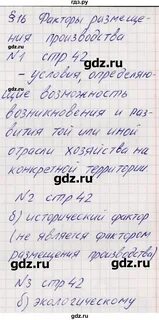 §16 Факторы размеще-
ния производства
N1 стр 42
- условия, определяю-
щие возможность
возникновения и раз-
вития той или иной
отрасли хозяйства на
конкретной территории
N2 стр 42
б) исторический фактор
(не является фактором
размещения производства)
N3 стр 42
б) экологическому
gdz.ru
gdz.ru
gdz.ru
gdz.ru
gdz.ru
gdz.ru
gdz.ru
gdz.ru